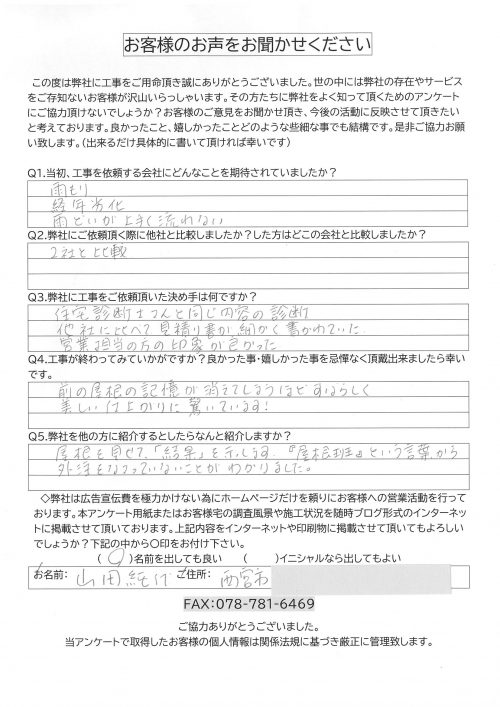 お客様のお声をお聞かせください
この度は弊社に工事をご用命頂き誠にありがとうございました。世の中には弊社の存在やサービス
をご存知ないお客様が沢山いらっしゃいます。その方たちに弊社をよく知って頂くためのアンケート
にご協力頂けないでしょうか？お客様のご意見をお聞かせ頂き、今後の活動に反映させて頂きたい
と考えております。良かったこと、嬉しかったことどのような些細な事でも結構です。是非ご協力お願
い致します。（出来るだけ具体的に書いて頂ければ幸いです）
Q1.当初、工事を依頼する会社にどんなことを期待されていましたか？
雨もり
経年劣化
雨どいが上手く流れない
Q2.弊社にご依頼頂く際に他社と比較しましたか？した方はどこの会社と比較しましたか？
2社と比較
Q3.弊社に工事をご依頼頂いた決め手は何ですか？
住宅診断士さんと同じ内容の診断
他社に比べて見積り書が細かく書かれていた
営業担当の方の印象が良かった
Q4.工事が終わってみていかがですか？良かった事・嬉しかった事を忌憚なく頂戴出来ましたら幸い
です。
前の屋根の記憶が消えてしまうほどすばらしく
美しい仕上がりに驚いています！
Q5.弊社を他の方に紹介するとしたらなんと紹介しますか？
屋根を見せて、「結果」を示します。『屋根班』という言葉から
外注をなさっていないことがわかりました。
◇弊社は広告宣伝費を極力かけない為にホームページだけを頼りにお客様への営業活動を行って
おります。本アンケート用紙またはお客様宅の調査風景や施工状況を随時ブログ形式のインターネッ
トに掲載させて頂いております。上記内容をインターネットや印刷物に掲載させて頂いてもよろしい
でしょうか？下記の中から〇印をお付け下さい。
（ ○ ）名前を出しても良い （ ）イニシャルなら出してもよい
お名前： 山田 ご住所： 西宮市
FAX：078-781-6469
ご協力ありがとうございました。
当アンケートで取得したお客様の個人情報は関係法規に基づき厳正に管理致します。